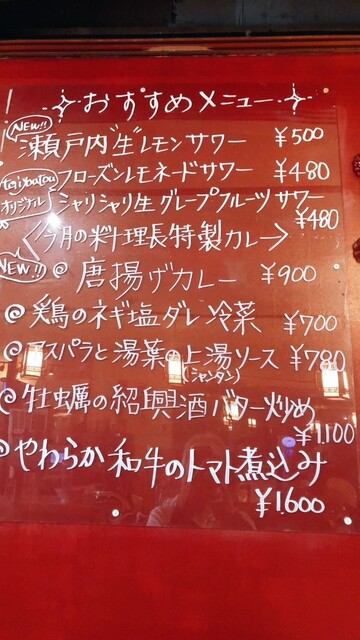 おすすめメニュー
NEW!!
瀬戸内"生"レモンサワー ¥500
フローズンレモネードサワー ¥480
オリジナル
シャリシャリ生グレープフルーツサワー
¥480
<今月の料理長特製カレー>
NEW!!
@ 唐揚げカレー ¥900
@ 鶏のネギ塩ダレ冷菜 ¥700
@ アスパラと湯葉の上湯ソース ¥780
(シャンタン)
@ 牡蠣の紹興酒バター炒め
¥1.100
@ やわらか和牛のトマト煮込み
¥1.600